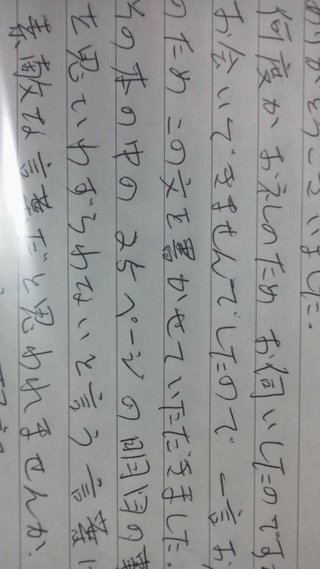 ありがとうございました。
何度かお礼のためお伺いしたのです
お会いできませんでしたので一言お
のためこの文を書かせていただきました。
その本の中の ページの明日の事
を思いわずらわないと言う言葉は
素敵な言葉だと思われませんか